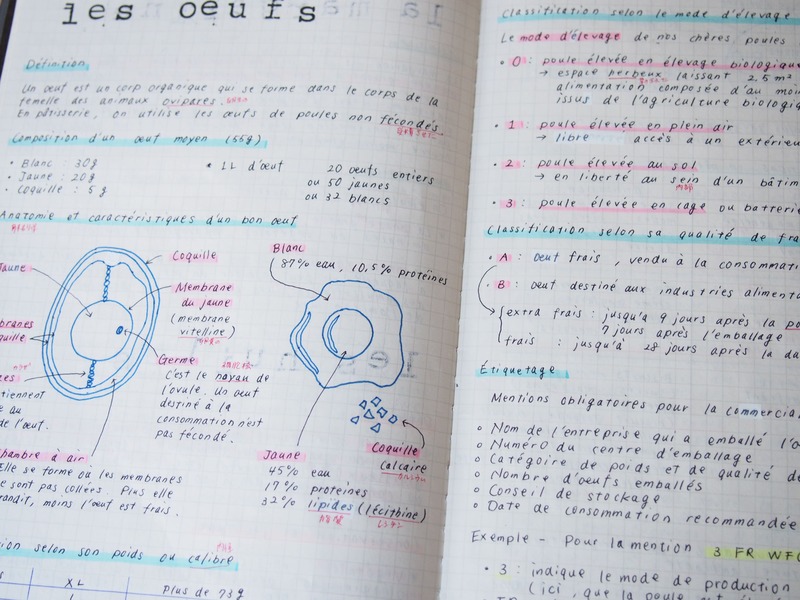 les oeufs
Définition
Un œuf est un corp organique qui se forme dans le corps de la
femelle des animaux ovipares.
En pâtisserie, on utilise les œufs de poules non fécondés
Composition d'un œuf moyen (55g)
• Blanc : 30g
• Jaune : 20g
• Coquille : 5 g
* 1L d'œuf
20 œufs entiers
ou 50 jaunes
ou 32 blancs
Anatomie et caractéristiques d'un bon œuf
Jaune
Coquille
Membrane
du jaune
(membrane
vitelline)
Germe
C'est le noyau de
l'ovule. Un œuf
destiné à la
consommation n'est
pas fécondé.
tiennent
au
de l'œuf.
chambre à air
Elle se forme où les membranes
ne sont pas collées. Plus elle
grandit, moins l'œuf est frais.
Blanc
87% eau, 10,5% protéines
Jaune
45% eau
17% protéines
32% lipides (lécithine)
レシチン
Coquille
calcaire
selon son poids ou calibre
XL
Plus de 73g
Classification selon le mode d'élevage
Le mode d'élevage de nos chères poules
• 0 : poule élevée en élevage biologique
→ espace herbeux laissant 2.5 m²
alimentation composée d'au moin
issus de l'agriculture biologiq
• 1 : poule élevée en plein air
→ libre accès à un extérieu
• 2 : poule élevée au sol
→ en liberté au sein d'un bâtim
内部
• 3 : poule élevée en cage ou batterie
Classification selon sa qualité de fra
• A : œuf frais, vendu à la consommati
• B : œuf destiné aux industries alimenta
extra frais : jusqu'à 9 jours après la po
7 jours après l'emballage
frais : jusqu'à 28 jours après la da
Étiquetage
Mentions obligatoires pour la commercia
o Nom de l'entreprise qui a emballé l'o
o Numéro du centre d'emballage
o Catégoire de poids et de qualité de
o Nombre d'oeufs emballés
o Conseil de stockage
o Date de consommation recommandée
Exemple - Pour la mention 3 FR WFO
• 3 : indique le mode de production
(ici, que la poule